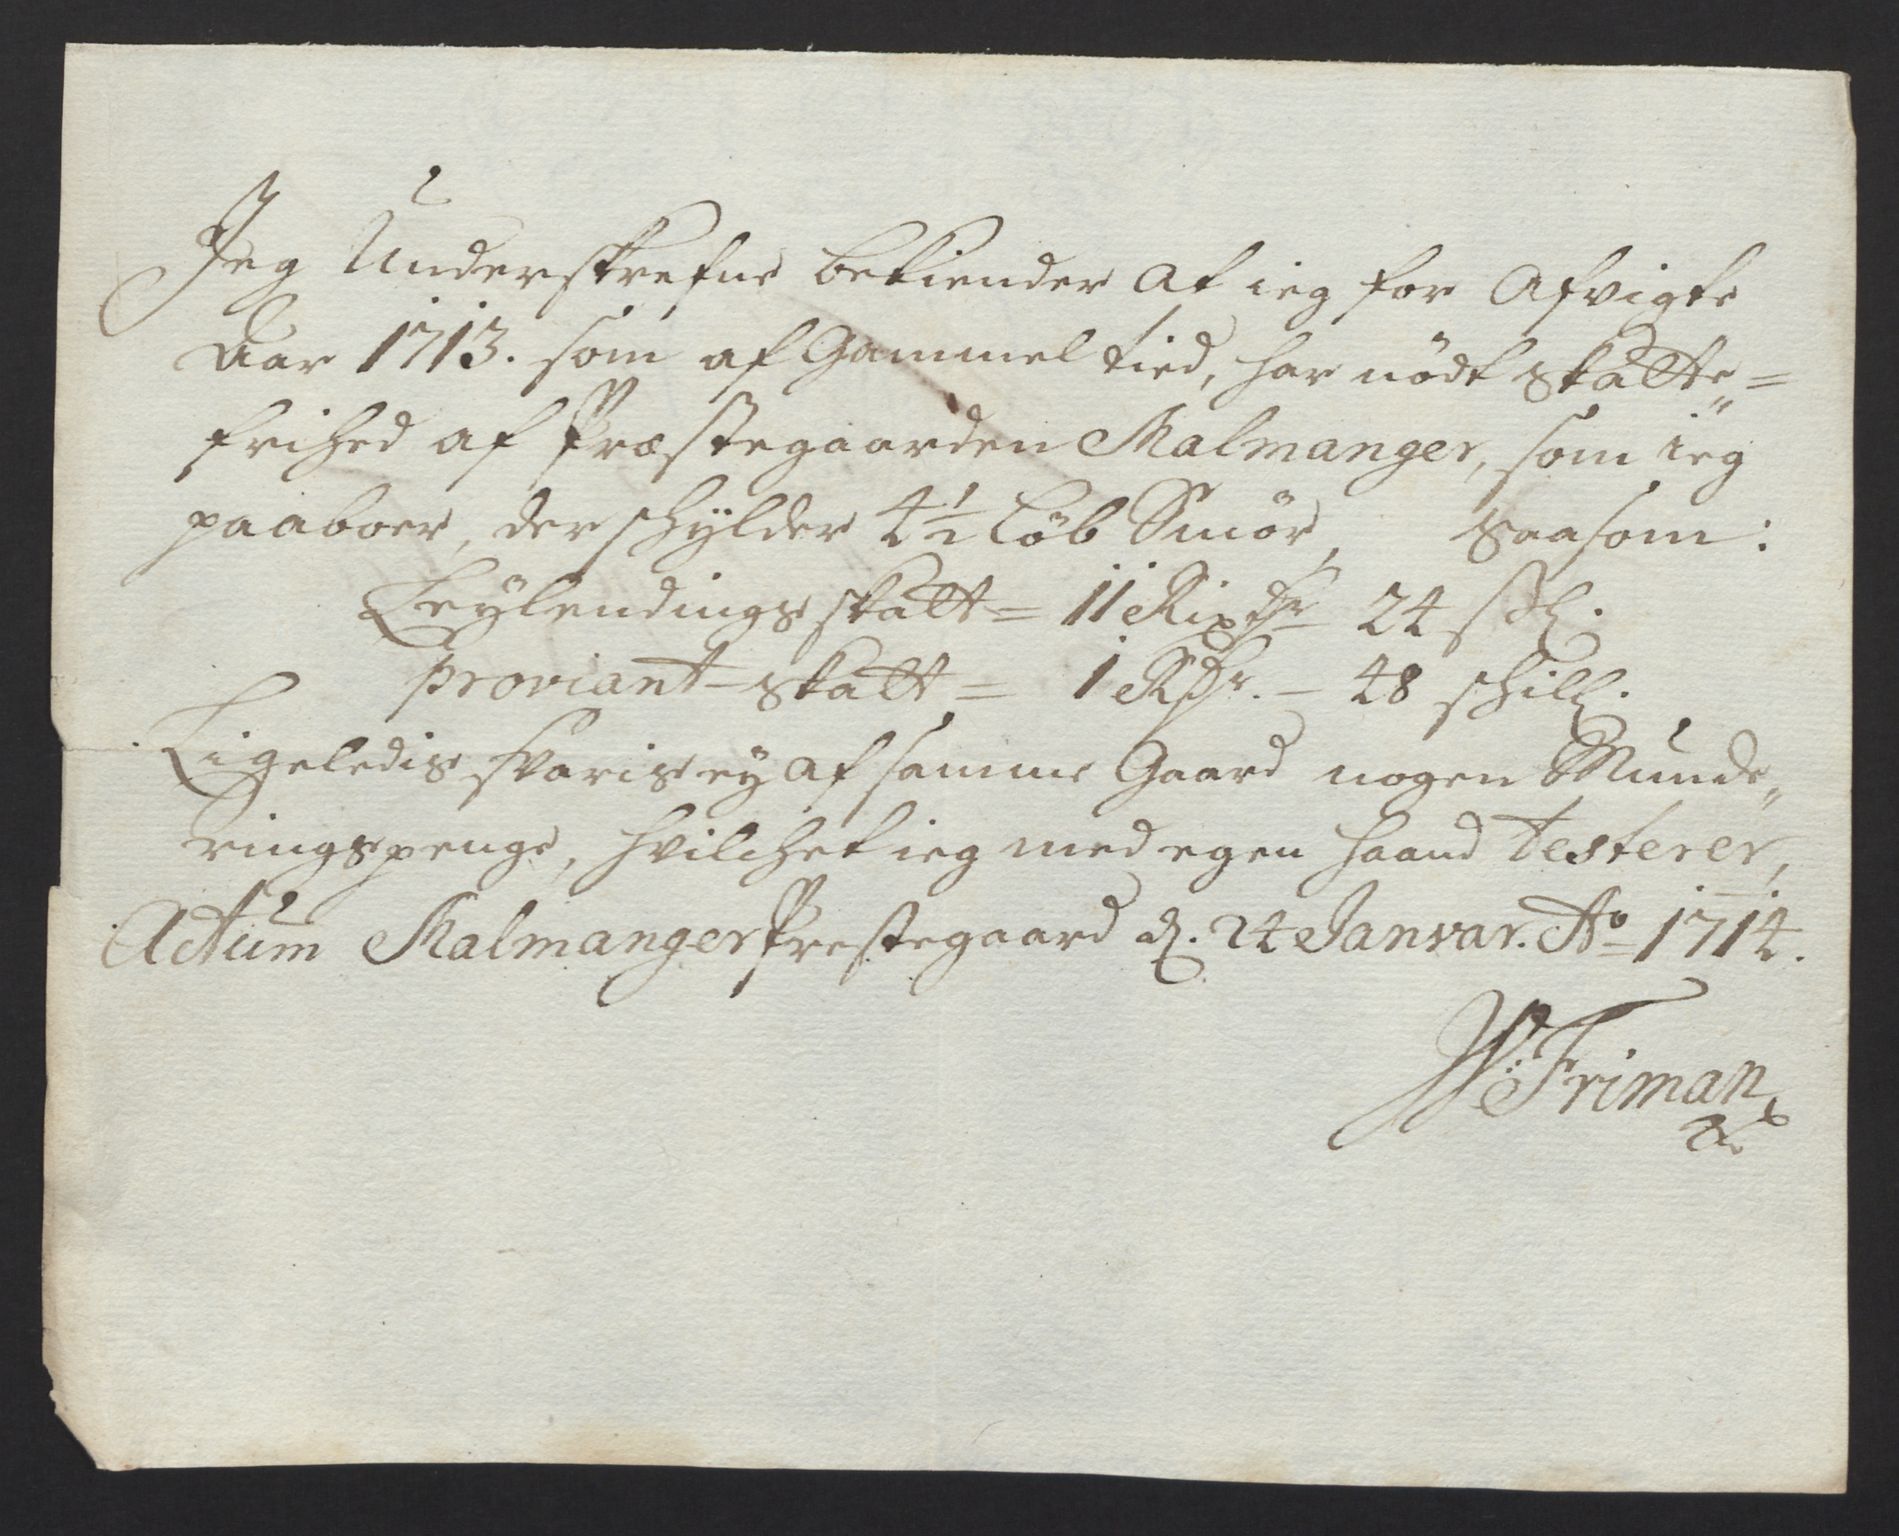 Jeg Underskrefne bekiender at ieg for Afvigte
Aar 1713. som af Gammel tied, har nödt skatte=
frihed af Præstegaarden Malmanger, som ieg
paaboer, der schylder 4½ Löb Smör, saasom:
Leÿlendings skatt = 11 Rixdr – 24 sch.
proviant-skatt = 1 Rdr. – 48 schill.
Ligeledis svaris eÿ af samme Gaard nogen Munde„
ringspenge, hvilchet ieg med egen haand testerer,
Actum Malmanger Prestegaard d. 24 Janvar. Ao 1714.
W: Friman